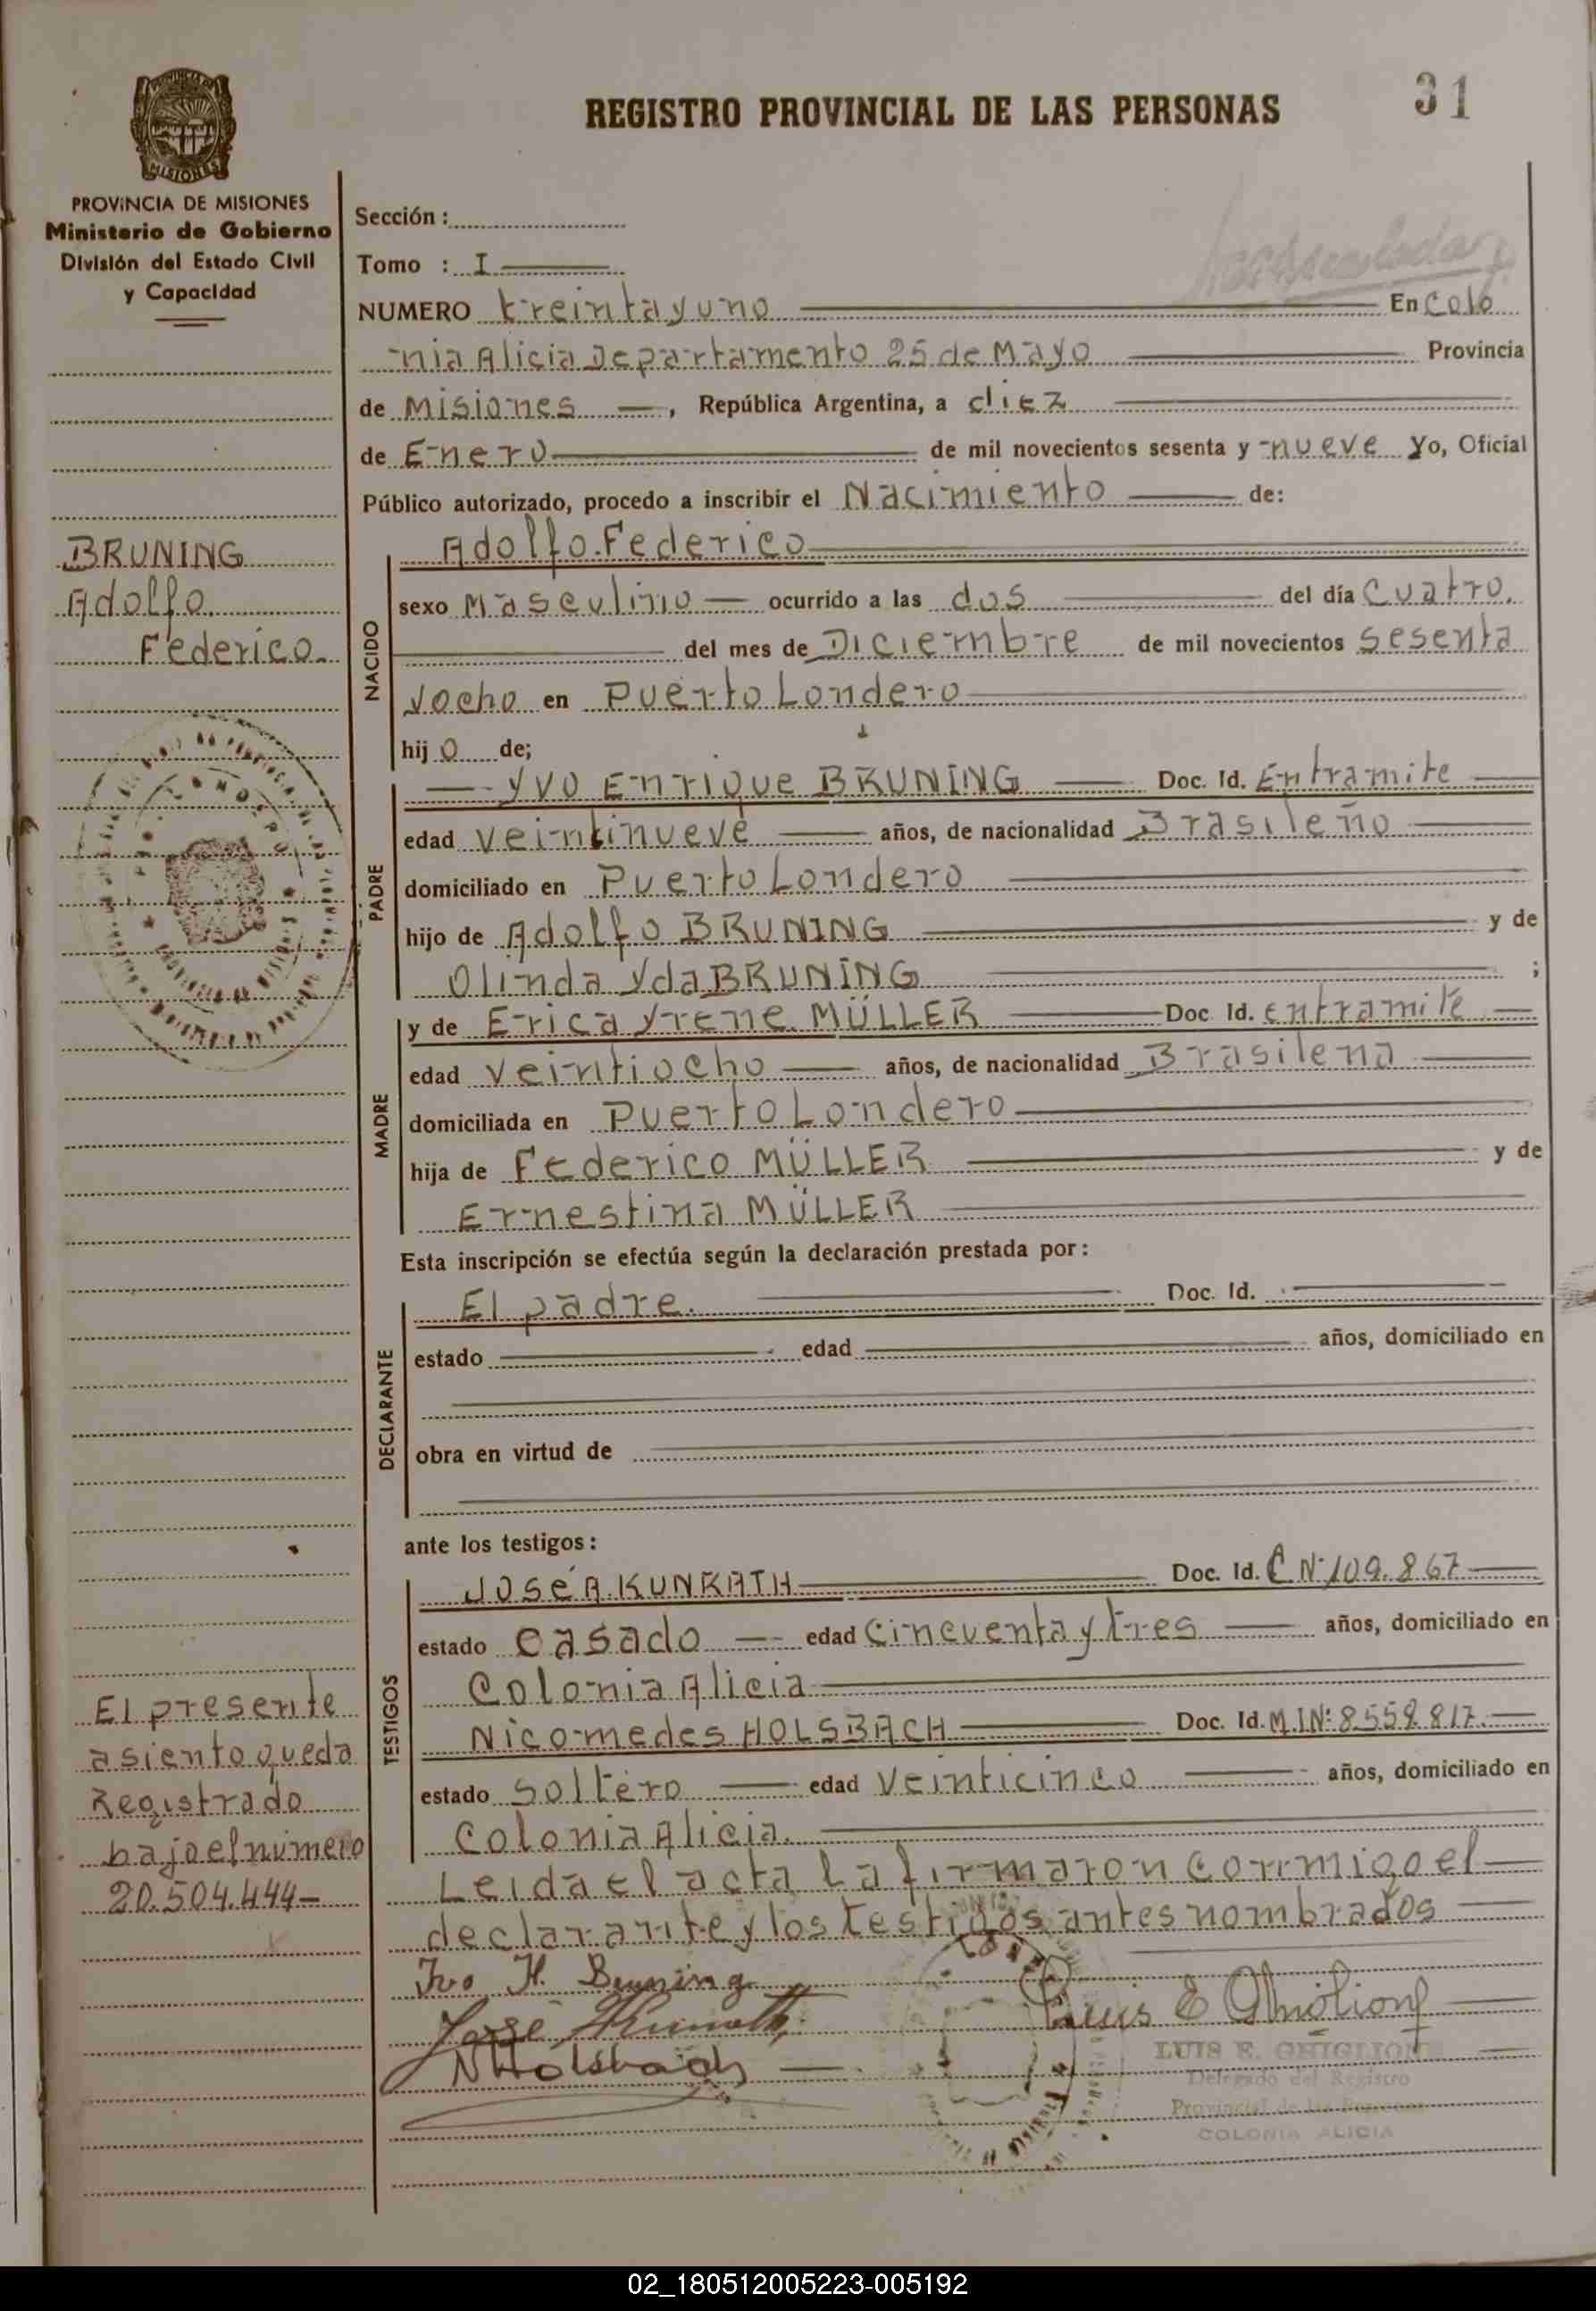 REGISTRO PROVINCIAL DE LAS PERSONAS
31
PROVINCIA DE MISIONES
Ministerio de Gobierno
División del Estado Civil
y Capacidad
Sección :
Tomo : I
NUMERO treinta y uno En Colo
nia Alicia Departamento 25 de Mayo Provincia
de Misiones, República Argentina, a diez
de Enero de mil novecientos sesenta y nueve Yo, Oficial
Público autorizado, procedo a inscribir el Nacimiento de:
BRUNING
Adolfo
Federico
NACIDO
Adolfo Federico
sexo Masculino ocurrido a las dos del día Cuatro.
del mes de Diciembre de mil novecientos sesenta
yocho en Puerto Londero
hijo de;
PADRE
Yvo Enrique BRUNING Doc. Id. Entramite
edad veintinueve años, de nacionalidad Brasileño
domiciliado en Puerto Londero
hijo de Adolfo BRUNING y de
Olinda Yda BRUNING ;
MADRE
y de Erica Yrene MÜLLER Doc. Id. entramite
edad veintiocho años, de nacionalidad Brasilena
domiciliada en Puerto Londero
hija de Federico MÜLLER y de
Ernestina MÜLLER
Esta inscripción se efectúa según la declaración prestada por:
DECLARANTE
El padre. Doc. Id.
estado edad años, domiciliado en
obra en virtud de
ante los testigos:
TESTIGOS
JOSÉ A. KUNRATH Doc. Id. C N° 109.867
estado casado edad Cincuenta y tres años, domiciliado en
Colonia Alicia
Nicomedes HOLSBACH Doc. Id. M.I N° 8.559.817.
estado soltero edad veinticinco años, domiciliado en
Colonia Alicia.
El presente
asiento queda
Registrado
bajo el número
20.504.444-
Leida el acta la firmaron conmigo el
declarante y los testigos antes nombrados
Ivo H. Bruning
José Kunrath
NHolsbach
Luis E Ghiglione
LUIS E. GHIGLIONE
Delegado del Registro
Provincial de las Personas
COLONIA ALICIA
02_180512005223-005192